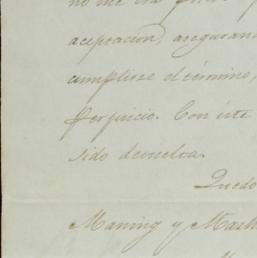 no me era
aceptacion, asegurand
cumplirse el término,
perjuicio. Con este
sido devuelta.
Quedo
Maning y Mark